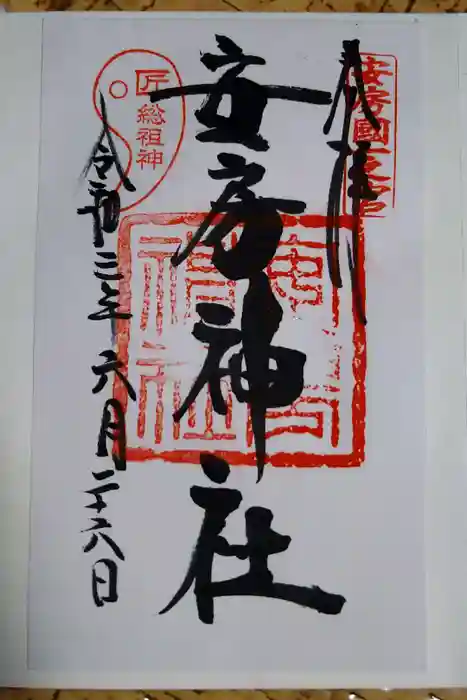 奉拝
安房國一之宮
安房神社
安房神社
匠総祖神
令和三年六月二十六日